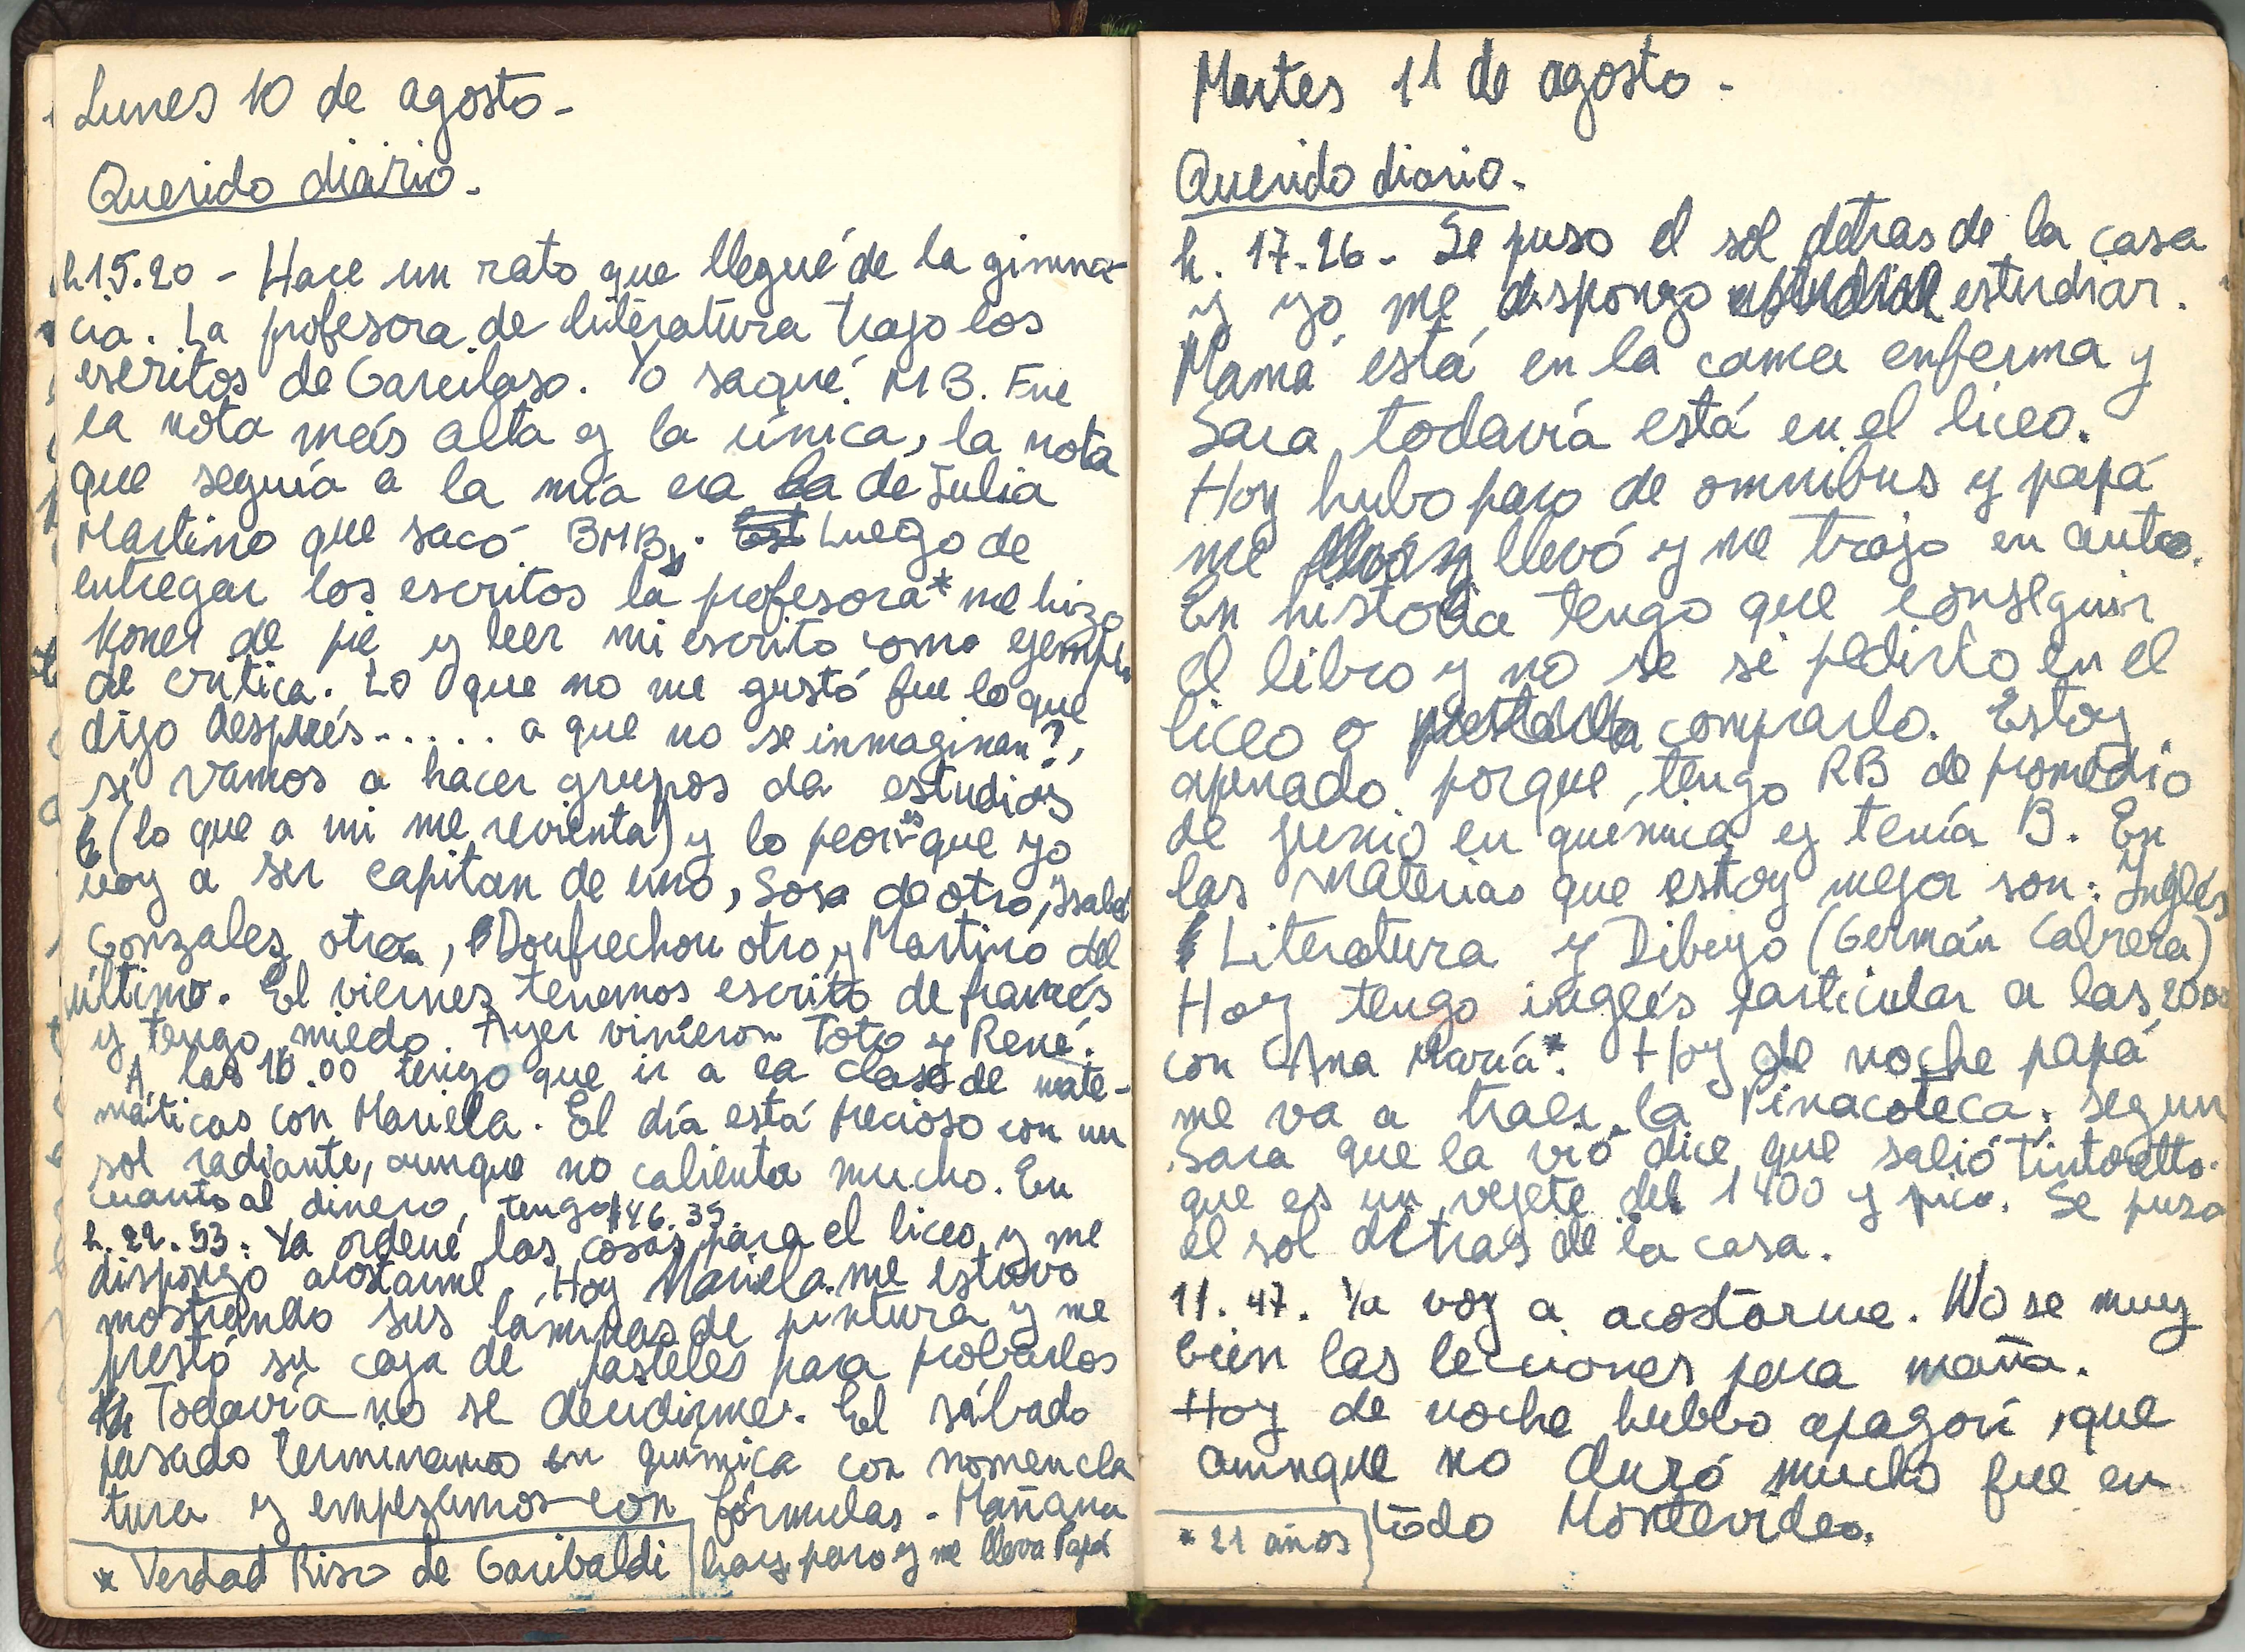 Lunes 10 de agosto-
Querido diario.-
h.15.20 - Hace un rato que llegué de la gimna-
cia. La profesora de literatura trajo los
escritos de Garcilaso. Yo saqué MB. Fue
la nota más alta y la única, la nota
que seguía a la mía era la de Julia
Martino que sacó BMB. Luego de
entregar los escritos la profesora* me hizo
poner de pie y leer mi escrito como ejemplo
de crítica. Lo que no me gustó fue lo que
dijo después..... a que no se inmaginan?,
si vamos a hacer grupos da estudios
(lo que a mi me revienta) y lo peor es que yo
voy a ser capitan de uno, Sosa de otro, Isabel
Gonzales otro, Doufrechou otro y Martino del
último. El viernes tenemos escrito de francés
y tengo miedo. Ayer vinieron Toto y René.
A las 18.00 tengo que ir a la clase de mate-
máticas con Mariela. El día está precioso con un
sol radiante, aunque no calienta mucho. En
cuanto al dinero, tengo $46.35.
h. 22.53: Ya ordené las cosas para el liceo y me
dispongo acostarme. Hoy Mariela me estuvo
mostrando sus láminas de pintura y me
prestó su caja de pasteles para probarlos
Todavía no se decidirme. El sábado
pasado terminamos en química con nomencla
tura y empezamos con fórmulas - Mañana
hay paro y me lleva Papá
* Verdad Risso de Garibaldi
Martes 11 de agosto -
Querido diario.-
h. 17.26 - Se puso el sol detras de la casa
y yo me dispongo estudiar.
Mamá está en la cama enferma y
Sara todavía está en el liceo.
Hoy hubo paro de omnibus y papá
me llevó y me trajo en auto.
En historia tengo que conseguir
el libro y no se si pedirlo en el
liceo o comprarlo. Estoy
apenado porque tengo RB de promedio
de junio en química y tenía B. En
las materias que estoy mejor son: Inglés
Literatura y Dibujo (Germán Cabrera)
Hoy tengo inglés particular a las 2000
con Ana María*. Hoy de noche papá
me va a traer la Pinacoteca, segun
Sara que la vió dice que salió Tintoretto.
que es un vejete del 1400 y pico. Se puso
el sol detras de la casa.
11.47. Ya voy a acostarme. No se muy
bien las lecciones para maña.
Hoy de noche hubbo apagon, que
aunque no duró mucho fue en
todo Montevideo.
* 21 años